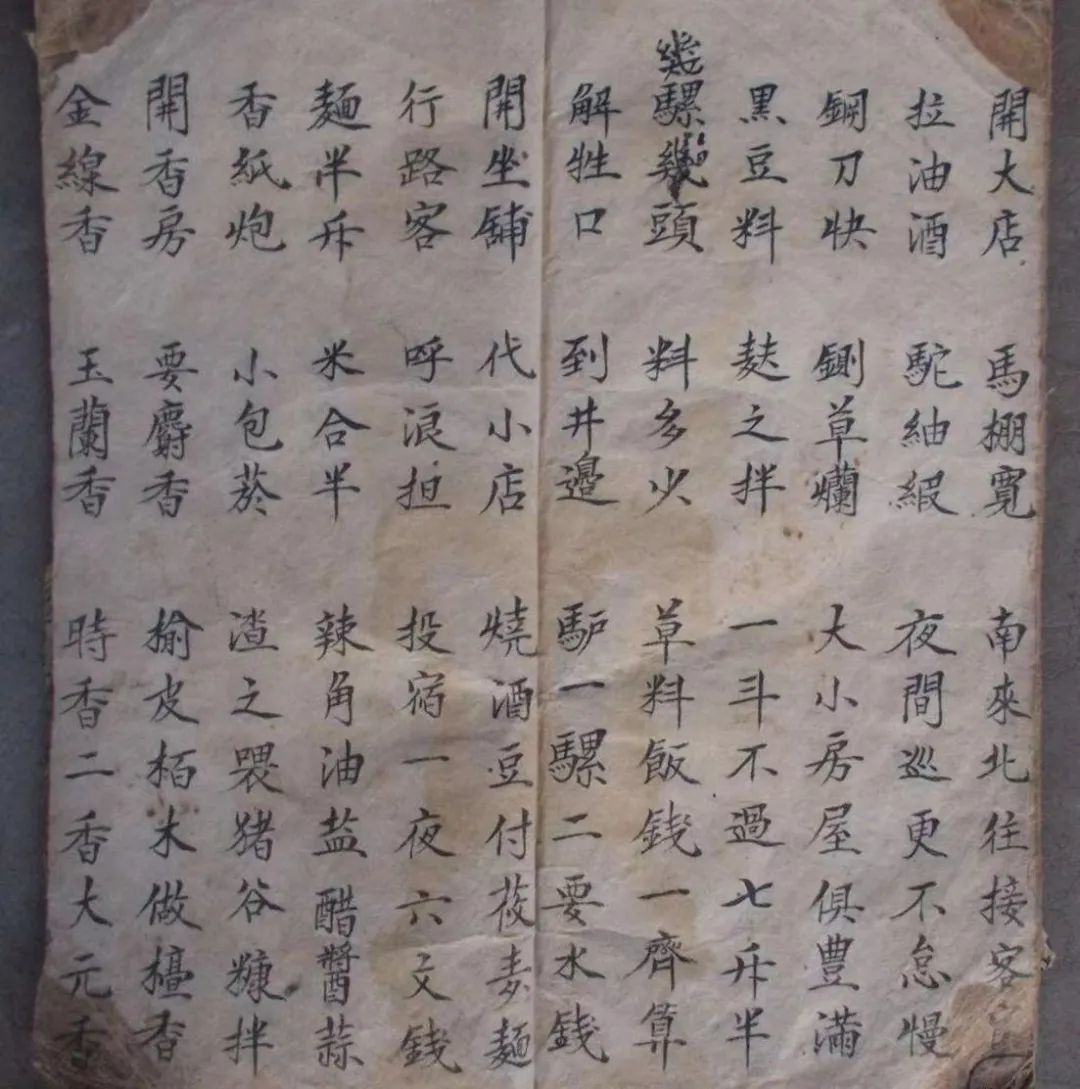 開大店 馬棚寬 南來北往接客官
拉油酒 駝紬緞 夜間巡更不怠慢
鋼刀快 鍘草爛 大小房屋俱豊滿
黑豆料 麸之拌 一斗不過七斤半
幾騾幾頭 料多少 草料飯錢一齊算
解牲口 到井邊 馿一騾二要水錢
開坐舖 代小店 燒酒豆付莜麦麺
行路客 呼浪担 投宿一夜六文錢
麺半斤 米合半 辣角油盐醋醬蒜
香紙炮 小包菸 渣之喂猪谷糠拌
開香房 要麝香 榆皮栢木做檯香
金線香 玉蘭香 時香二香大元香